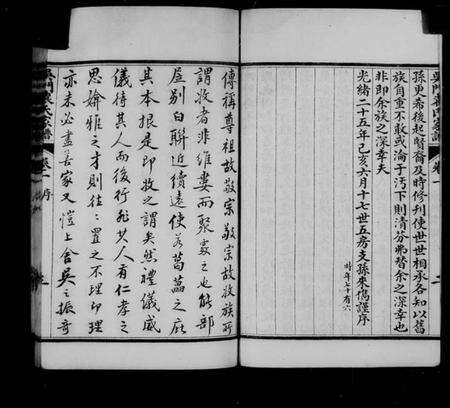 孫更希後起賢裔及時修刋使世世相承各知以舊
族自重不敢或淪于汚下則清芬弗替余之深幸也
非即余族之深幸夫
光緒二十五年己亥六月十七世五房支孫來儁謹序
時年七十有六
傳稱尊祖故敬宗敬宗故收族所
謂收者非維婁而聚處之也能部
居別白聯近續遠使若葛藟之庇
其本根是即收之謂矣然禮儀咸
儀待其人而後行非其人有仁孝之
思嫺雅之才則往往置之不理即理
亦未必盡善家又愷上舍吳之振奇
卷一 序